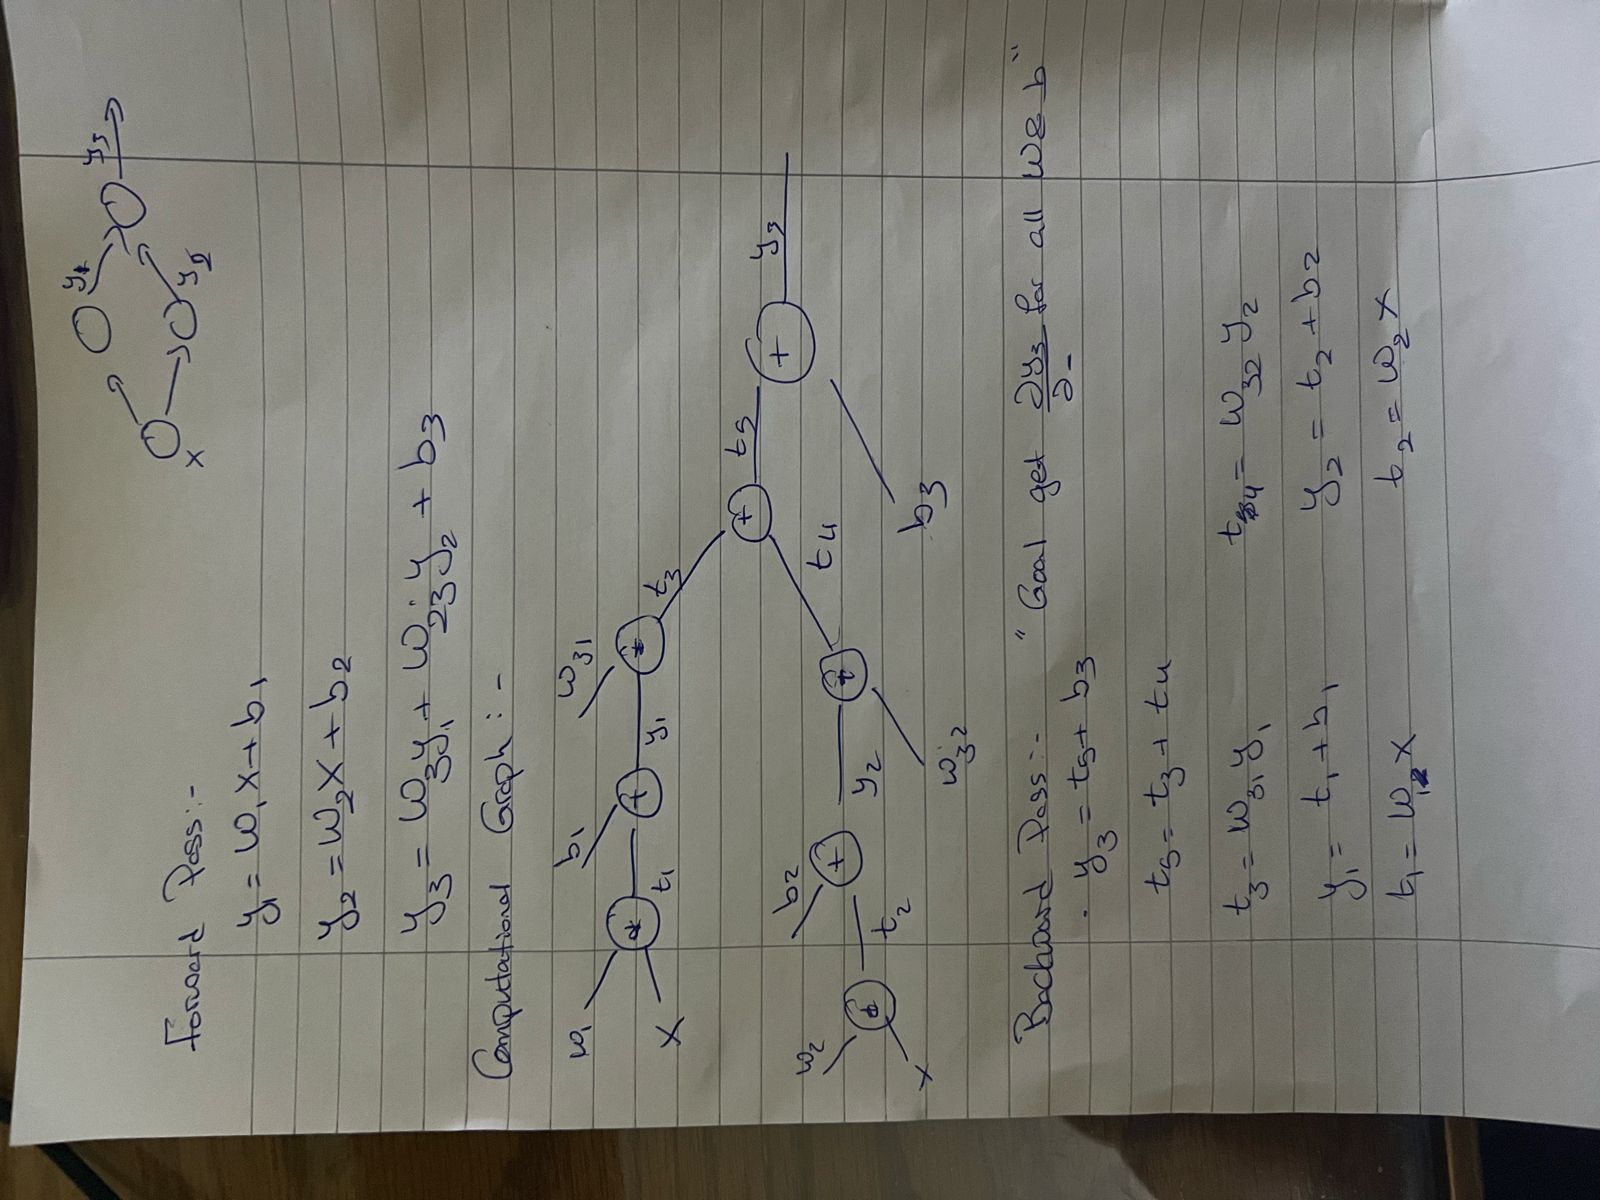 x y1 y2 y3
Forward Pass:-
y₁ = w₁x + b₁
y₂ = w₂x + b₂
y₃ = w₃y₁ + w₂₃y₂ + b₃
Computational Graph:-
w₁ x * t₁ b₁ + y₁ w₃₁ * t₃
+ t₅ + y₃
w₂ x * t₂ b₂ + y₂ w₃₂ * t₄
b₃
Backward Pass:- "Goal get ∂y₃/∂- for all w & b"
. y₃ = t₅ + b₃
t₅ = t₃ + t₄
t₃ = w₃₁y₁ t₄ = w₃₂y₂
y₁ = t₁ + b₁ y₂ = t₂ + b₂
t₁ = w₁x t₂ = w₂x